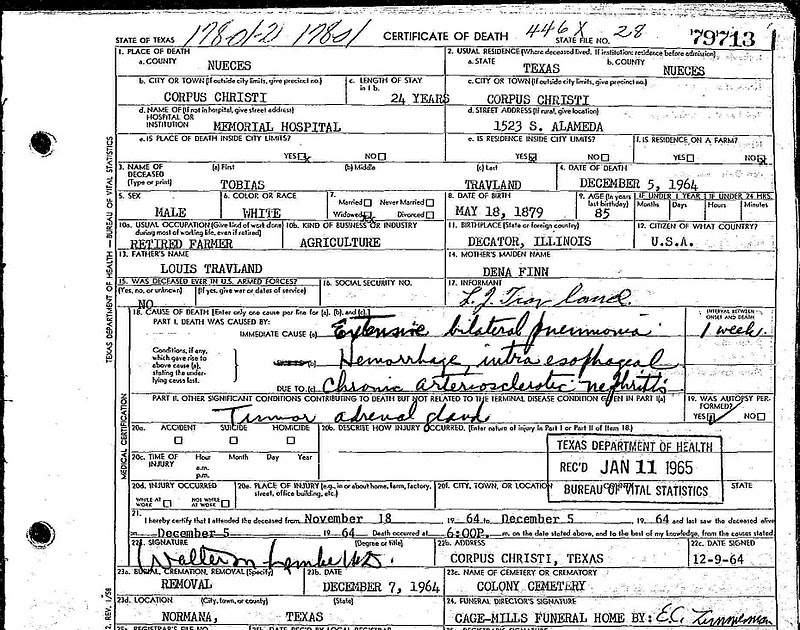 178-01-21 1780/ CERTIFICATE OF DEATH 446X 28 79713
STATE OF TEXAS STATE FILE NO.
1. PLACE OF DEATH 2. USUAL RESIDENCE (Where deceased lived. If institution: residence before admission)
a. COUNTY NUECES a. STATE TEXAS b. COUNTY NUECES
b. CITY OR TOWN (If outside city limits, give precinct no.) c. LENGTH OF STAY in 1 b. c. CITY OR TOWN (If outside city limits, give precinct no.)
CORPUS CHRISTI 24 YEARS CORPUS CHRISTI
d. NAME OF (If not in hospital, give street address) HOSPITAL OR INSTITUTION d. STREET ADDRESS (If rural, give location)
MEMORIAL HOSPITAL 1523 S. ALAMEDA
e. IS PLACE OF DEATH INSIDE CITY LIMITS? e. IS RESIDENCE INSIDE CITY LIMITS? f. IS RESIDENCE ON A FARM?
YES NO YES NO YES NO
3. NAME OF DECEASED (Type or print) (a) First (b) Middle (c) Last 4. DATE OF DEATH
TOBIAS TRAVLAND DECEMBER 5, 1964
5. SEX 6. COLOR OR RACE 7. Married Never Married 8. DATE OF BIRTH 9. AGE (In years last birthday) IF UNDER 1 YEAR IF UNDER 24 HRS.
Months Days Hours Minutes
MALE WHITE Widowed Divorced MAY 18, 1879 85
10a. USUAL OCCUPATION (Give kind of work done during most of working life, even if retired) 10b. KIND OF BUSINESS OR INDUSTRY 11. BIRTHPLACE (State or foreign country) 12. CITIZEN OF WHAT COUNTRY?
RETIRED FARMER AGRICULTURE DECATOR, ILLINOIS U.S.A.
13. FATHER'S NAME 14. MOTHER'S MAIDEN NAME
LOUIS TRAVLAND DENA FINN
15. WAS DECEASED EVER IN U.S. ARMED FORCES? 16. SOCIAL SECURITY NO. 17. INFORMANT
(Yes, no, or unknown) (If yes, give war or dates of service)
NO
18. CAUSE OF DEATH [Enter only one cause per line for (a), (b), and (c).] INTERVAL BETWEEN ONSET AND DEATH
PART I. DEATH WAS CAUSED BY:
IMMEDIATE CAUSE (a) Extensive bilateral pneumonia 1 week.
Conditions, if any, which gave rise to above cause (a), stating the underlying cause last. (b) Hemorrhage, intra esophageal
DUE TO (c) Chronic arteriosclerotic nephritis
PART II. OTHER SIGNIFICANT CONDITIONS CONTRIBUTING TO DEATH BUT NOT RELATED TO THE TERMINAL DISEASE CONDITION GIVEN IN PART I(a) 19. WAS AUTOPSY PERFORMED?
Tumor adrenal gland YES NO
20a. ACCIDENT SUICIDE HOMICIDE 20b. DESCRIBE HOW INJURY OCCURRED. (Enter nature of injury in Part I or Part II of Item 18.)
20c. TIME OF INJURY Hour a.m. p.m. Month Day Year
TEXAS DEPARTMENT OF HEALTH
REC'D JAN 11 1965
BUREAU OF VITAL STATISTICS
20d. INJURY OCCURRED 20e. PLACE OF INJURY (e.g., in or about home, farm, factory, street, office building, etc.) 20f. CITY, TOWN, OR LOCATION COUNTY STATE
WHILE AT WORK NOT WHILE AT WORK
21. I hereby certify that I attended the deceased from November 18 1964 to December 5 1964 and last saw the deceased alive
on December 5 1964 Death occurred at 6:00P. m. on the date stated above, and to the best of my knowledge, from the causes stated
22a. SIGNATURE (Degree or title) 22b. ADDRESS 22c. DATE SIGNED
CORPUS CHRISTI, TEXAS 12-9-64
23a. BURIAL, CREMATION, REMOVAL (Specify) 23b. DATE 23c. NAME OF CEMETERY OR CREMATORY
REMOVAL DECEMBER 7, 1964 COLONY CEMETERY
23d. LOCATION (City, town, or county) (State) 24. FUNERAL DIRECTOR'S SIGNATURE
NORMANA, TEXAS CAGE-MILLS FUNERAL HOME BY: E.C. Zimmerman
TEXAS DEPARTMENT OF HEALTH — BUREAU OF VITAL STATISTICS
MEDICAL CERTIFICATION
REV. 1/58